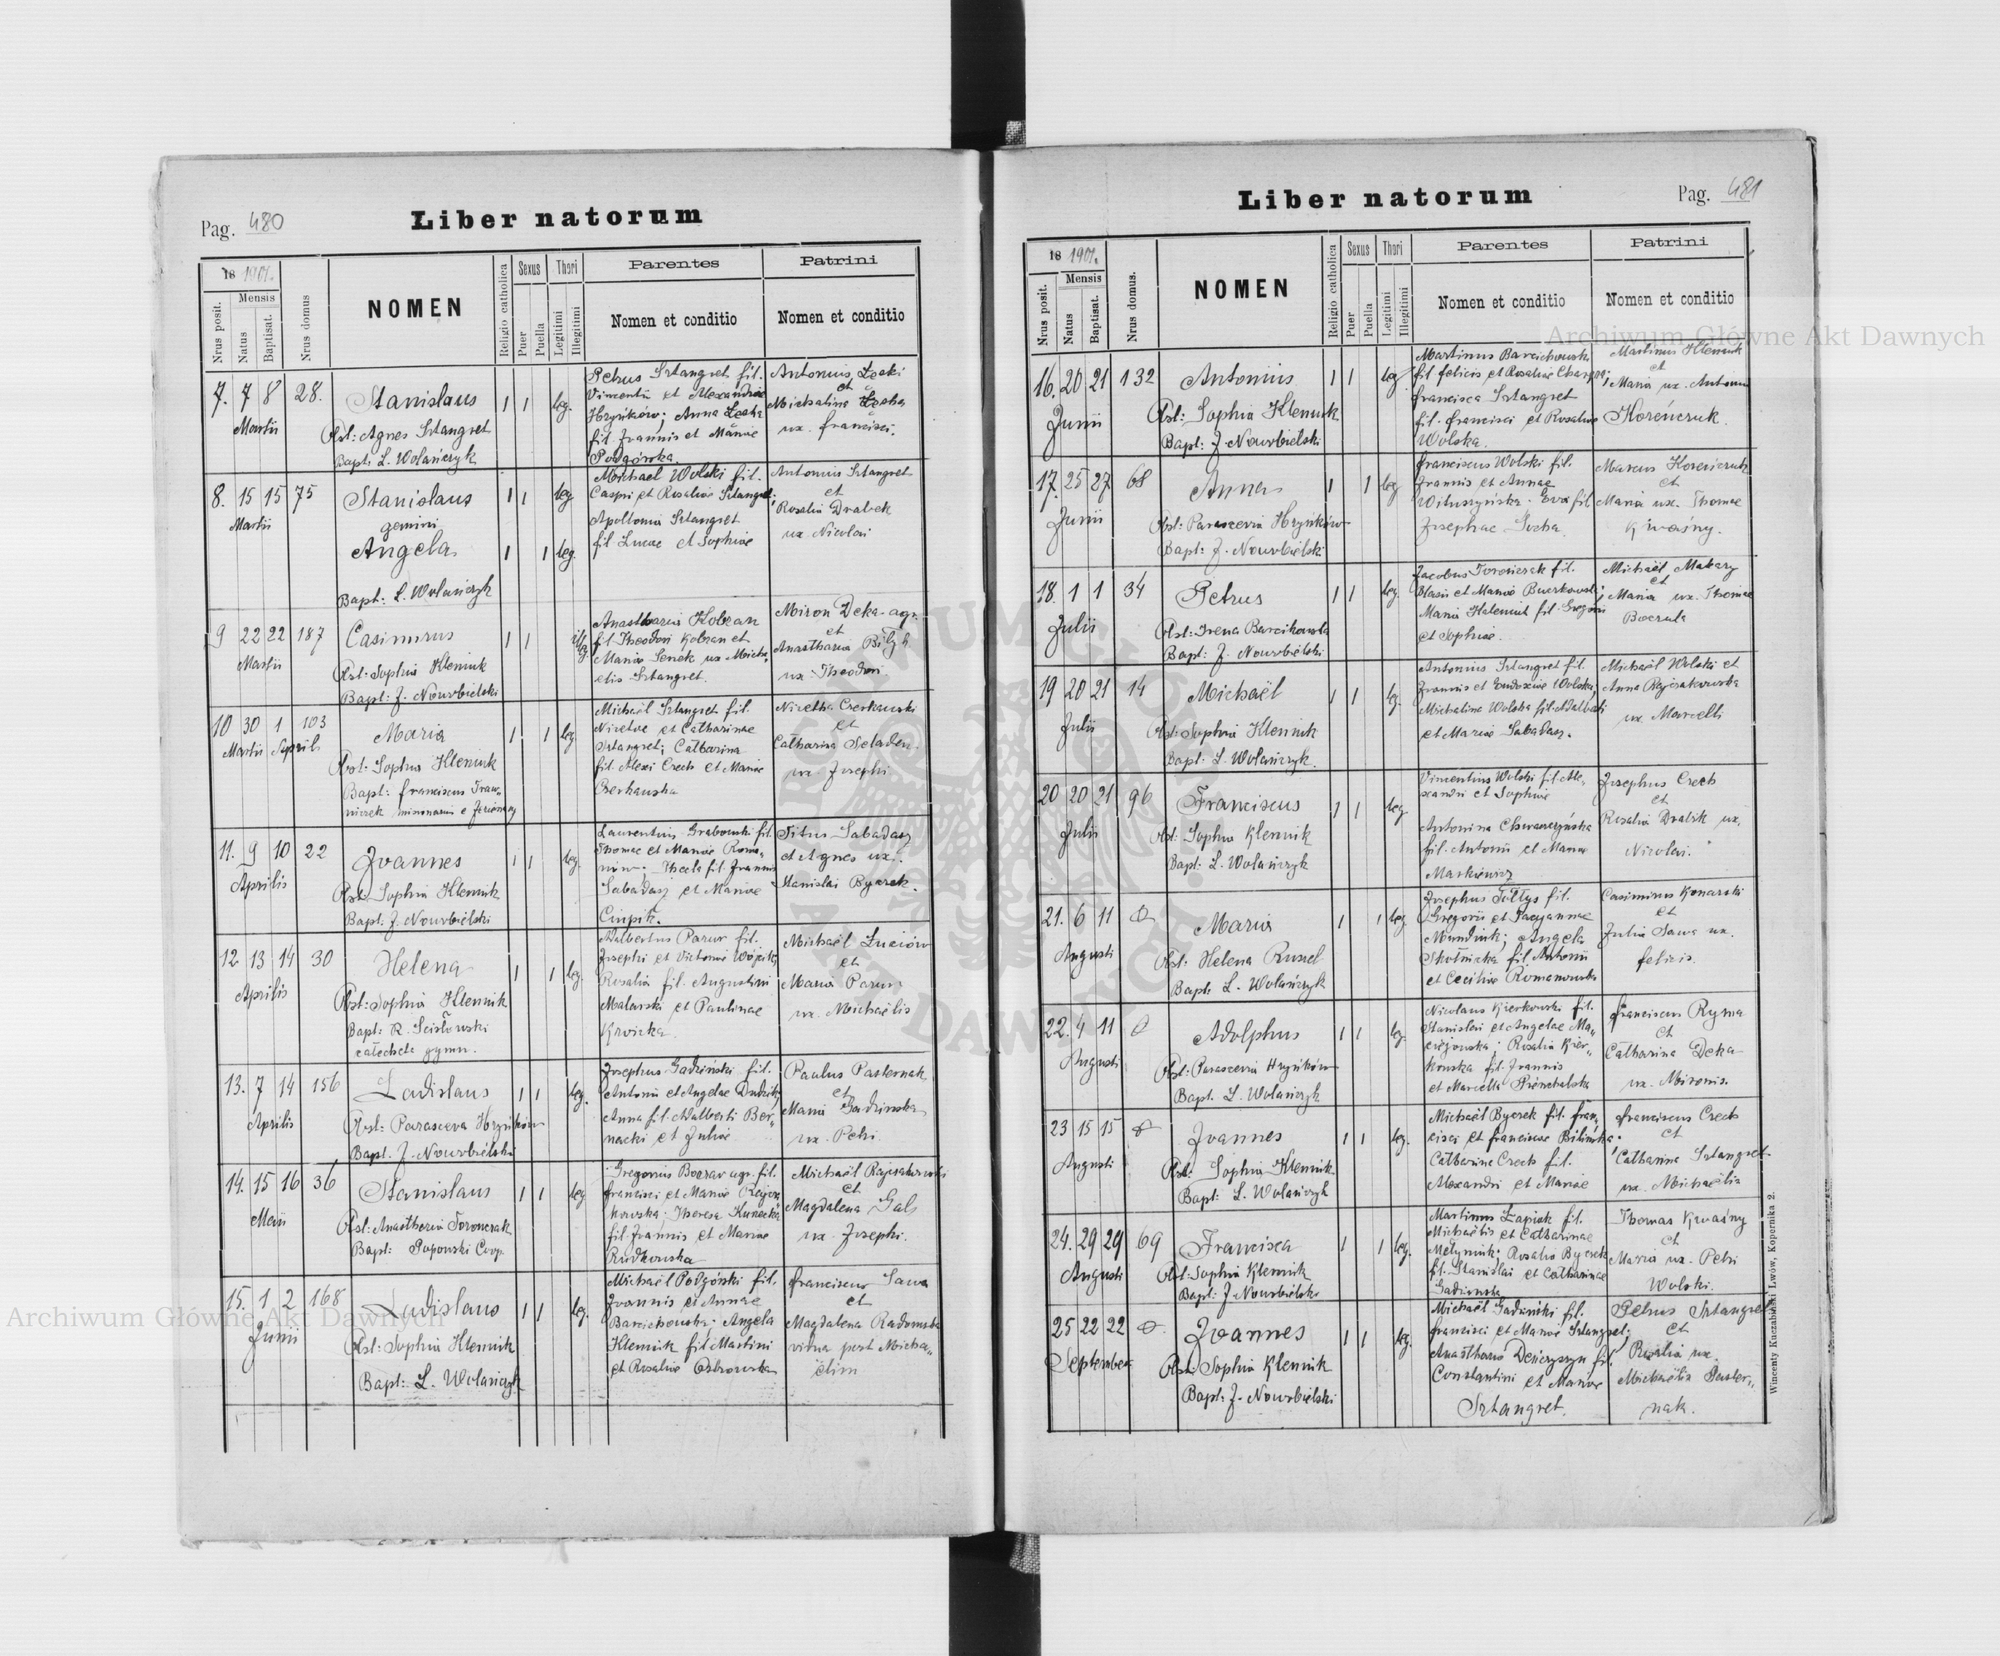 Pag. 480
Liber natorum
18 1901.
Nrus posit.
Mensis
Natus
Baptisat.
Nrus domus
NOMEN
Religio catholica
Sexus
Puer
Puella
Thori
Legitimi
Illegitimi
Parentes
Nomen et conditio
Patrini
Nomen et conditio
7. 7 8 28.
Martii
Stanislaus
Obst: Agnes Sztangret
Bapt: L. Wolańczyk
1 1 leg.
Petrus Sztangret fil.
Vincentii et Alexandrae
Hryńków; Anna Łeska
fil. Joannis et Mariae
Podgórska.
Antonius Łeski
et
Michalina Łeska
ux. Francisci.
8. 15 15 75
Martii
Stanislaus
gemini
Angela
Bapt: L. Wolańczyk
1 1 leg
1 1 leg.
Michael Wolski fil.
Caspri et Rosaliae Sztangret;
Apollonia Sztangret
fil Lucae et Sophiae
Antonius Sztangret
et
Rosalia Drabek
ux. Nicolai
9 22 22 187
Martii
Casimirus
Obst: Sophia Kleniuk
Bapt: J. Nowobielski
1 1 illeg
Anastharia Kobran
fil. Theodori Kobran et
Maria Senek ux. Micha,
elis Sztangret.
Miron Deka agr.
et
Anastharia Biłyk
ux. Theodori.
10 30 1 103
Martii Aprilis
Maria
Obst: Sophia Kleniuk
Bapt: Franciscus
1 1 leg
Michaël Sztangret fil.
Nicetae et Catharinae
Sztangret; Catharina
fil. Alexi Czech et Mariae
Czerkawska
Nicetha Czerkawski
et
Catharina
ux. Josephi
11. 9 10 22
Aprilis
Joannes
Obst: Sophia Kleniuk
Bapt. J. Nowobielski
1 1 leg.
Laurentius Grabowski fil.
Thomae et Mariae Roma,
nów; Thecla fil. Joannis
Sabadasz et Mariae
Titus Sabadasz
et Agnes ux.
Stanislai Byczek.
12 13 14 30
Aprilis
Helena
Obst: Sophia Kleniuk
Bapt: R. Scisłowski
catecheta gymn.
1 1 leg.
Adalbertus Parur fil.
Josephi et Victoriae Wójcik,
Rosalia fil. Augustini
Malarski et Paulinae
Michaël Luciów
et
Maria Parur
ux. Michaëlis
13. 7 14 156
Aprilis
Ladislaus
Obst: Parascevia Hryńków
Bapt. J. Nowobielski
1 1 leg.
Josephus Gadziński fil.
Antonii et Angelae Dudzik,
Anna fil. Adalberti Ber,
nacki et Juliae
Paulus Pasternak
et
Maria Gadzinska
ux. Petri
14. 15 16 36
Maii
Stanislaus
Obst: Anastharia Toronczak
Bapt: Popowski Coop.
1 1 leg
Gregorius Boczar agr. fil.
Francisci et Mariae Rajcza,
kowska; Theresa Kunecka
fil. Joannis et Mariae
Rudkowska
Michaël Rajczakowski
et
Magdalena Gals
ux. Josephi.
15. 1 2 168
Junii
Ladislaus
Obst: Sophia Kleniuk
Bapt: L. Wolańczyk
1 1 leg.
Michaël Podgórski fil.
Joannis et Annae
Barcichowska; Angela
Kleniuk fil Martini
et Rosaliae Ostrowska
Franciscus Sawa
et
Magdalena Radomska
vidua post Micha,
ëlim
Liber natorum
Pag. 481
18 1901.
Nrus posit.
Mensis
Natus
Baptisat.
Nrus domus.
NOMEN
Religio catholica
Sexus
Puer
Puella
Thori
Legitimi
Illegitimi
Parentes
Nomen et conditio
Patrini
Nomen et conditio
16. 20 21 132
Junii
Antonius
Obst: Sophia Kleniuk
Bapt: J. Nowobielski
1 1 leg
Martinus Barcichowski
fil felicis et Rosaliae
Francisca Sztangret
fil. Francisci et Rosaliae
Wolska.
Martinus Kleniuk
et
Maria ux. Antonii
Koreńczuk.
17. 25 27 68
Junii
Anna
Obst: Parascevia Hryńków
Bapt: J. Nowobielski
1 1 leg
Franciscus Wolski fil.
Joannis et Annae
Wituszyńska. Eva fil
Josephae Socha.
Marcus Koreńczuk
et
Maria ux. Thomae
Kwaśny.
18. 1 1 34
Julii
Petrus
Obst: Irena Barcikowska
Bapt: J. Nowobielski
1 1 leg
Jacobus Toronczak fil.
Blasii et Mariae Buczkowski;
Maria Halemit fil. Gregorii
et Sophiae.
Michaël Makary
et
Maria ux. Thomae
19 20 21 14
Julii
Michaël
Obst: Sophia Kleniuk
Bapt: L. Wolańczyk.
1 1 leg.
Antonius Sztangret fil.
Joannis et Eudoxiae Wolska;
Michalina Wolska fil Adalberti
et Mariae Sabadasz.
Michaël Wolski et
Anna Rajczakowska
ux. Marcelli
20 20 21 96
Julii
Franciscus
Obst: Sophia Kleniuk
Bapt: L. Wolańczyk
1 1 leg
Vincentius Wolski fil. Ale,
xandri et Sophiae
Antonina Chwarczyńska
fil. Antonii et Mariae
Markiewicz
Josephus Czech
et
Rosalia Drabik ux.
Nicolai.
21. 6 11
Augusti
Maria
Obst: Helena
Bapt: L. Wolańczyk
1 1 leg.
Josephus Tołtys fil.
Gregorii et Pacyannae
Mundiuk; Angela
Skotnicka fil. Antonii
et Ceciliae Romanowska
Casimirus Konarski
et
Julia Sawa ux.
felicis.
22. 4 11
Augusti
Adolphus
Obst: Parascevia Hryńków
Bapt. L. Wolańczyk
1 1 leg.
Nicolaus Kierkowski fil.
Stanislai et Angelae Ma,
ciejowska; Rosalia Kier,
kowska fil. Joannis
et Marcella
Franciscus Ryma
et
Catharina Deka
ux. Mironis.
23 15 15
Augusti
Joannes
Obst: Sophia Kleniuk
Bapt: L. Wolańczyk
1 1 leg.
Michaël Byczek fil. fran,
cisci et Franciscae Bilińska;
Catharina Czech fil.
Alexandri et Mariae
Franciscus Czech
et
Catharina Sztangret
ux. Michaëlis
24. 29 29 69
Augusti
Francisca
Obst: Sophia Kleniuk
Bapt: J. Nowobielski
1 1 leg.
Martinus Łapiak fil.
Michaëlis et Catharinae
Mełyniuk; Rosalia Byczek
fil. Stanislai et Catharinae
Gadzinska
Thomas Kwaśny
et
Maria ux. Petri
Wolski.
25 22 22
September
Joannes
Obst: Sophia Kleniuk
Bapt: J. Nowobielski
1 1 leg.
Michaël Gadziński fil.
Francisci et Mariae Sztangret;
Anastharia Deńczyszyn fil.
Constantini et Mariae
Sztangret.
Petrus Sztangret
et
Rosalia ux.
Michaëlis Paster,,
nak.
Wincenty Kuczabiński Lwów, Kopernika 2.
Archiwum Główne Akt Dawnych
Archiwum Główne Akt Dawnych
ARCHIWUM GŁÓWNE AKT DAWNYCH